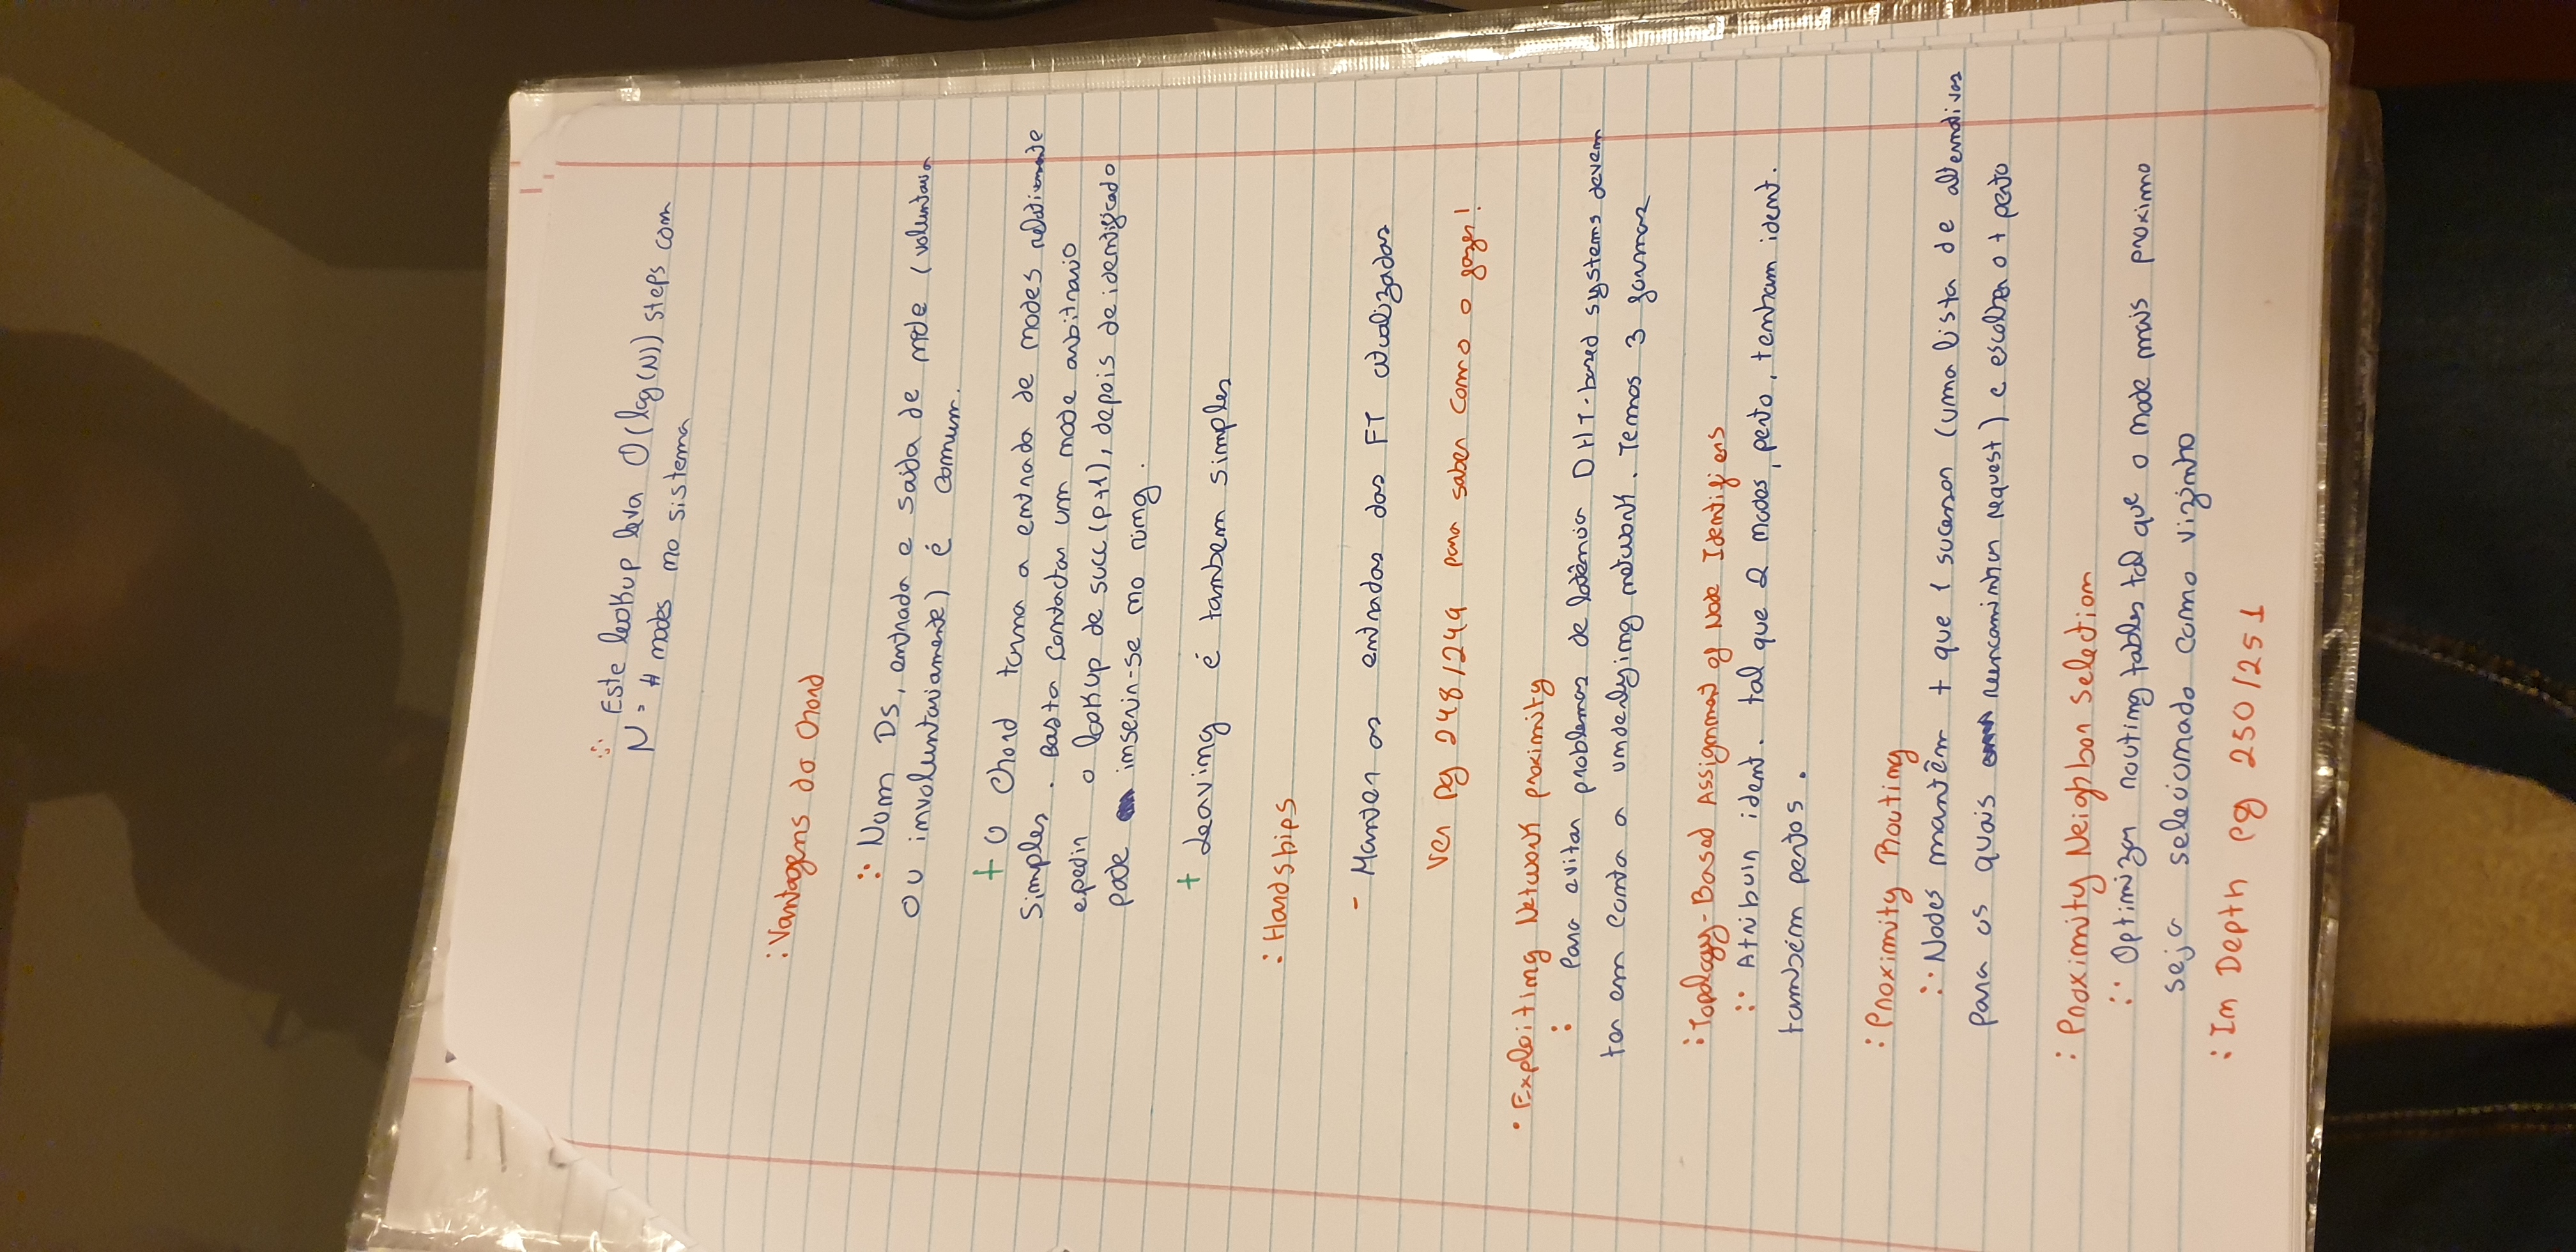 ∴ Este lookup leva O(log(N)) steps com
N = # nodes no sistema
: Vantagens do Chord
∴ Num DS, entrada e saida de node (voluntaria
ou involuntariamente) é comum.
+ O Chord torna a entrada de nodes relativamente
simples. Basta contactar um node arbitrario
e pedir o lookup de succ(p+1), depois de identificado
pode inserir-se no ring.
+ Leaving é tambem simples
: Hardships
- Manter as entradas das FT atualizadas
Ver pg 248/249 para saber como o fazer!
• Exploiting Network proximity
: Para evitar problemas de latência DHT-based systems devem
ter em conta a underlying network. Temos 3 formas
: Topology-Based Assignment of Node Identifiers
∴ Atribuir ident. tal que 2 nodes, perto, tenham ident.
também pertos.
: Proximity Routing
∴ Nodes mantêm + que 1 sucessor (uma lista de alternativas
para os quais reencaminhar request) e escolher o + perto
: Proximity Neighbor Selection
∴ Optimizar routing tables tal que o node mais proximo
seja selecionado como vizinho
: In Depth pg 250/251